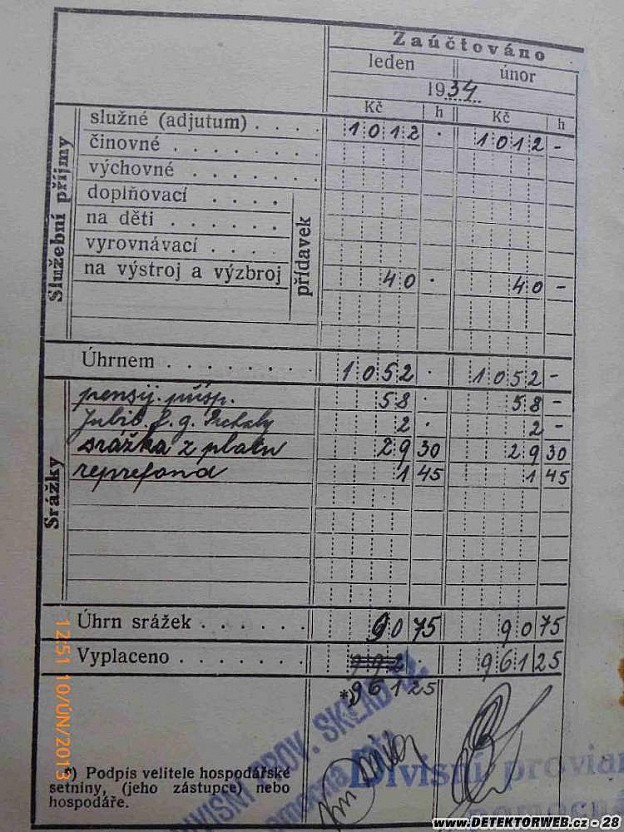 Zaúčtováno
leden únor
1934
Kč h Kč h
Služební příjmy
služné (adjutum) . . . . 1012 · 1012 –
činovné . . . . . . .
výchovné . . . . . .
přídavek
doplňovací . . . .
na děti . . . . .
vyrovnávací . . .
na výstroj a výzbroj 40 · 40 –
Úhrnem . . . . . . . 1052 · 1052 –
Srážky
pensij. přísp. 58 · 58 –
Jubil. f. g. 2 · 2 –
srážka z platu 29 30 29 30
reprefond 1 45 1 45
Úhrn srážek . . . . . . 90 75 90 75
Vyplaceno . . . . . . 961 25
*961 25
DIVISNÍ PROV. SKLAD
Divisní provian
pomocná
*) Podpis velitele hospodářské
setniny, (jeho zástupce) nebo
hospodáře.
12:51 10/ÚN/2013
www.DETEKTORWEB.cz - 28